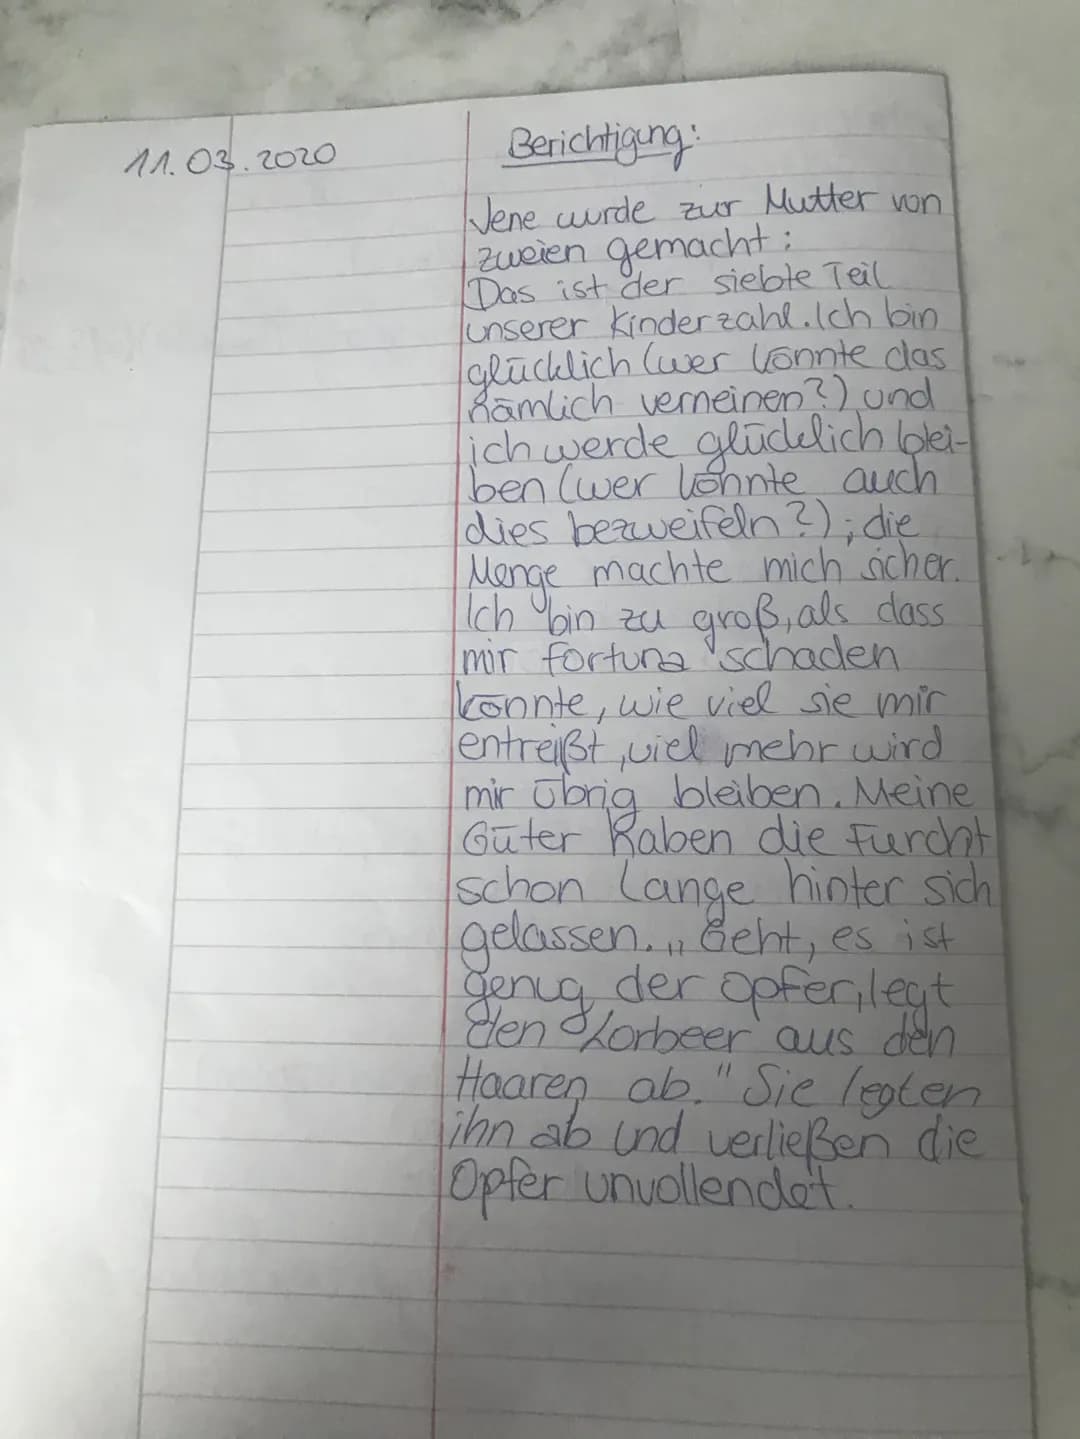 11.03.2020
Berichtigung:
Jene wurde zur Mutter von
zweien gemacht:
Das ist der siebte Teil
unserer Kinderzahl. Ich bin
glücklich (wer könnte das
nämlich verneinen?) und
ich werde glücklich blei-
ben (wer könnte auch
dies bezweifeln?); die
Menge machte mich sicher.
Ich bin zu groß, als dass
mir Fortuna schaden
könnte, wie viel sie mir
entreißt, viel mehr wird
mir übrig bleiben. Meine
Güter haben die Furcht
schon lange hinter sich
gelassen. „Geht, es ist
genug der Opfer, legt
den Lorbeer aus den
Haaren ab." Sie legten
ihn ab und verließen die
Opfer unvollendet.